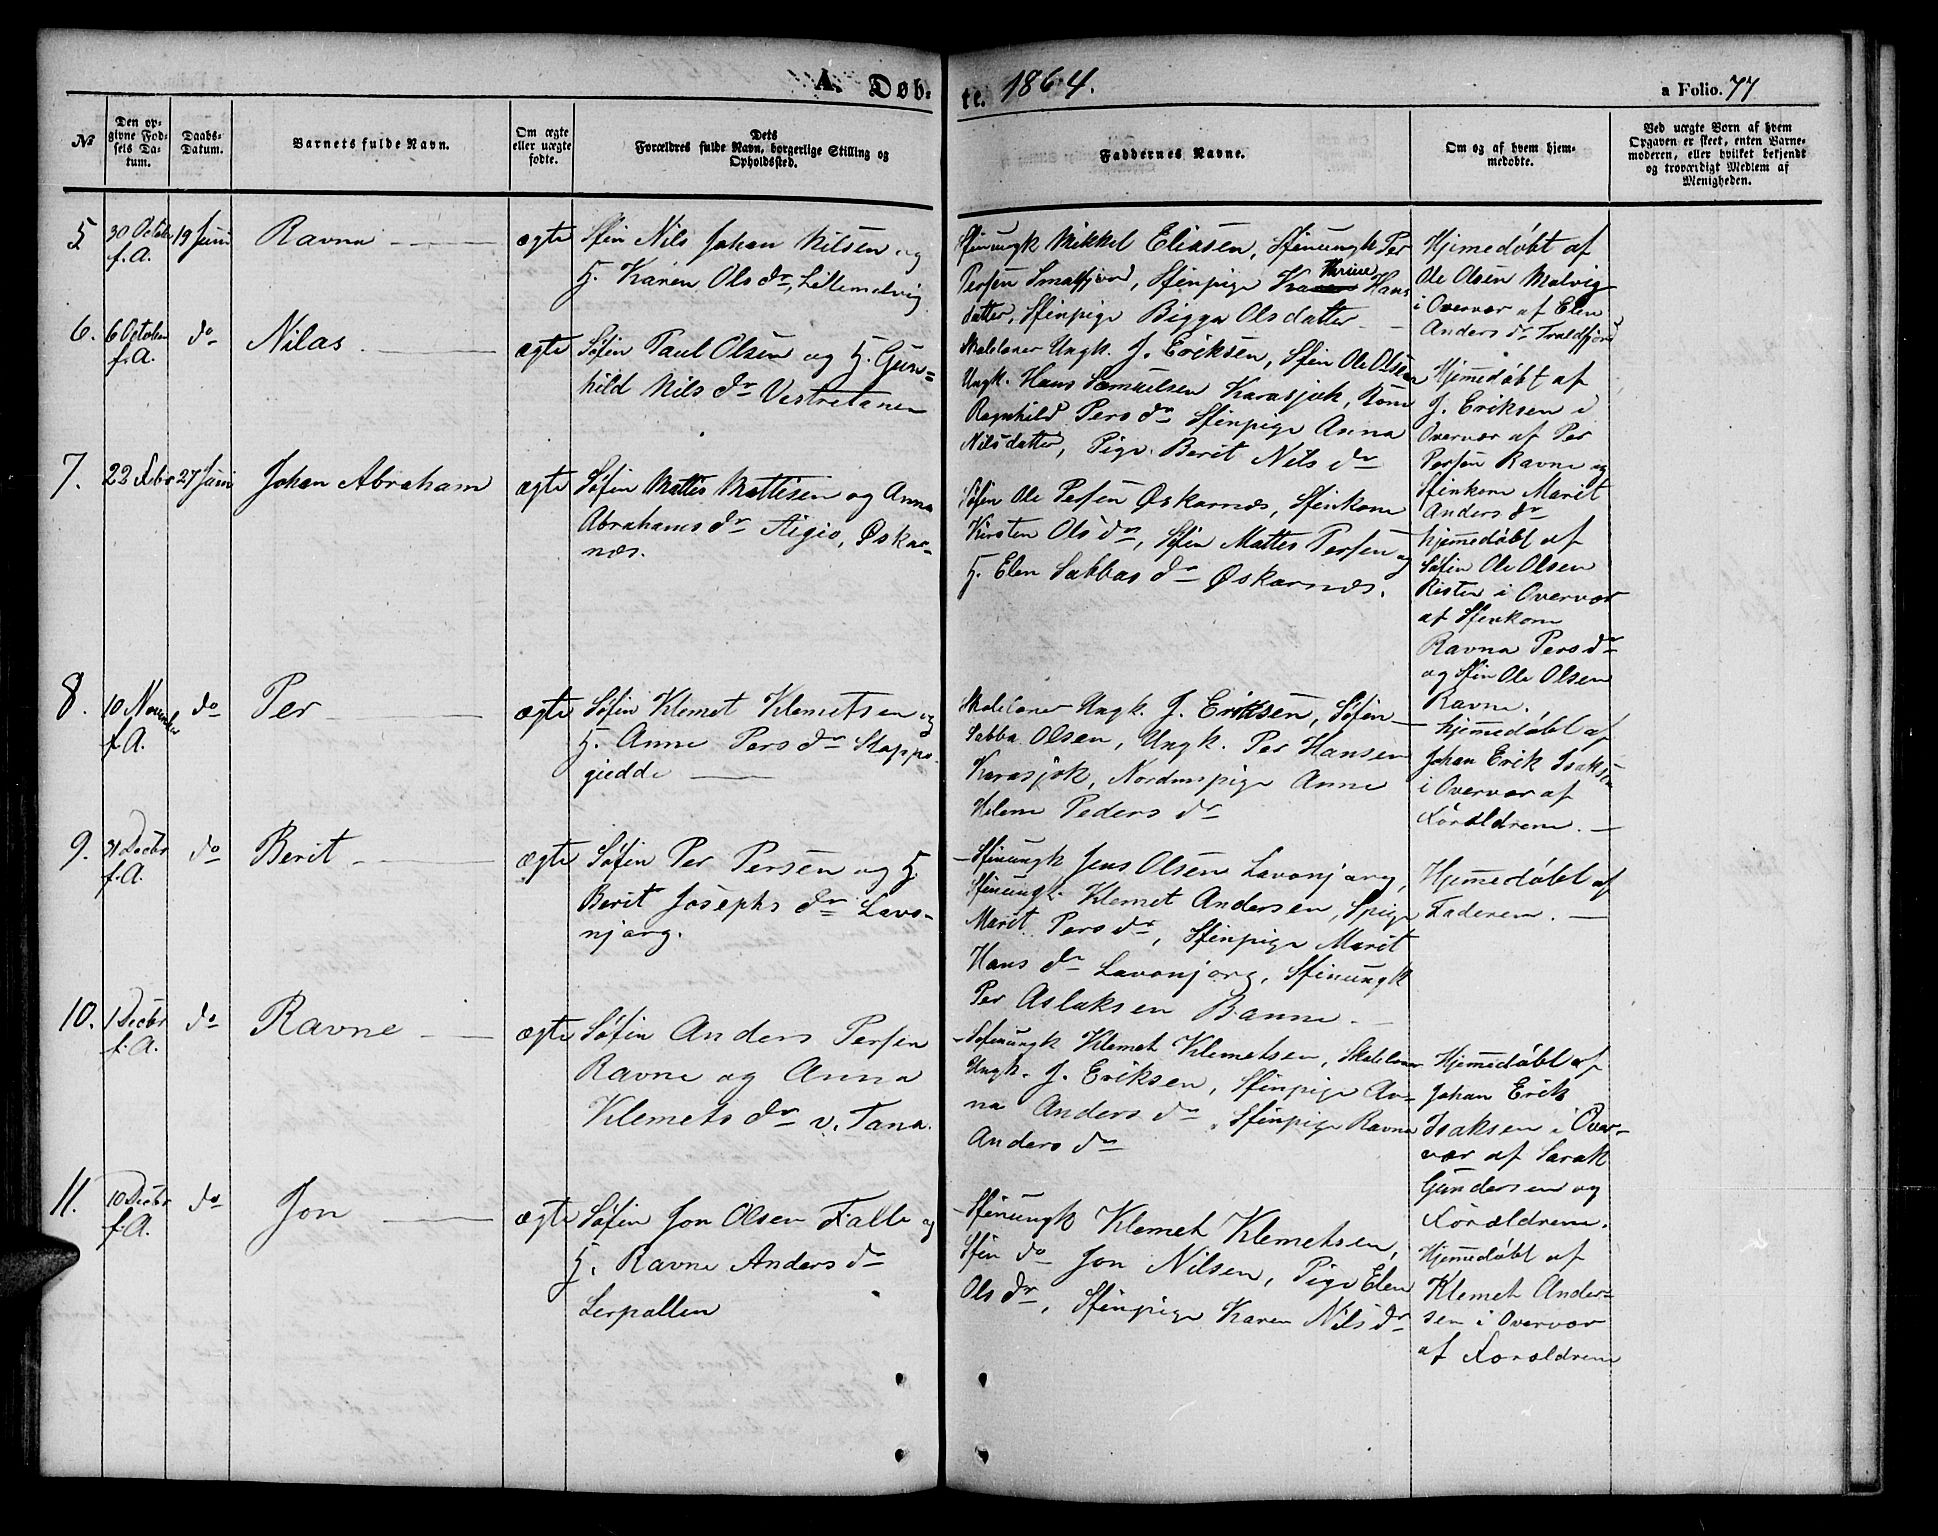 A. Døb-
te. 1864.
a Folio. 77
№
Den op-
givne Fød-
sels Da-
tum.
Daabs-
Datum.
Barnets fulde Navn.
Om ægte
eller uægte
fødte.
Dets
Forældres fulde Navn, borgerlige Stilling og
Opholdssted.
Faddernes Navne.
Om og af hvem hjem-
medøbte.
Ved uægte Børn af hvem
Opgaven er skeet, enten Barne-
moderen, eller hvilket bekjendt
og troværdigt Medlem af
Menigheden.
5.
30 Octobr
f. A.
19 Juni
Ravna
ægte
Sfin Nils Johan Nilsen og
H. Karen Ols dr, Lillemolvig
Sfinungk Mikkel Eliasen, Sfinungk Per
Persen Smalfjord, Sfinpige Karen Karine Hans
datter, Sfinpige Bigga Olsdatter
Hjemedøbt af
Ole Olsen Molvig
i Overvær af Elen
Anders dr Troldfjord
6.
6 October
f. A.
do
Nilas
ægte
Søfin Paul Olsen og H. Gun=
hild Nils dr Vestretanen
Skolelærer Ungk. J. Eriksen, Sfin Ole Olsen
Ungk. Hans Samuelsen Karasjok, Kone
Ragnhild Pers dr Sfinpige Anna
Nilsdatter, Pige Berit Nils dr
Hjemedøbt af
J. Eriksen i
Overvær af Per
Persen Ravna og
Sfinkone Marit
Anders dr
7.
22 Febr
27 Juni
Johan Abraham
ægte
Søfin Mattis Mattisen og Anna
Abrahams dr Aigio, Øskar-
næs.
Søfin Ole Persen Øskarnæs, Sfinkone
Kirsten Ols dr, Søfin Mattes Persen og
H. Elen Sabbas dr Øskarnæs.
hjemedøbt af
Søfin Ole Olsen
Risten i Overvær
af Sfinkone
Ravna Pers dr
og Sfin Ole Olsen
Ravna.
8.
10 November
f. A.
do
Per
ægte
Søfin Klemet Klemetsen og
H. Anne Pers dr Stoppo-
giedde
Skolelærer Ungk. J. Eriksen, Søfin
Sabba Olsen, Ungk. Per Hansen
Karasjok, Nordmspige Anne
Helene Peders dr
hjemedøbt af
Johan Erik Isaksen
i Overvær af
Forældrene.
9.
31 Decbr
f. A.
do
Berit
ægte
Søfin Per Persen og H.
Berit Josephs dr Lavo-
njarg.
Sfinungk Jens Olsen Lavonjarg,
Sfinungk. Klemet Andersen, Spige
Marit Pers dr, Sfinpige Marit
Hans dr Lavonjarg, Sfinungk
Per Aslaksen Banne.
Hjemedøbt af
Faderen.
10.
1 Decbr
f. A.
do
Ravne
ægte
Søfin Anders Persen
Ravne og Anna
Klemets dr v. Tana.
Søfinungk Klemet Klemetsen, Skolelærer
Ungk. J. Eriksen, Sfinpige An-
na Anders dr, Sfinpige Ravna
Anders dr
Hjemedøbt af
Johan Erik
Isaksen i Over-
vær af Sarak
Gundersen og
Forældrene.
11.
10 Decbr
f. A.
do
Jon
ægte
Søfin Jon Olsen Falle og
H. Ravne Anders dr
Lerpollen
Sfinungk Klemet Klemetsen,
Sfin do Jon Nilsen, Pige Elen
Ols dr, Sfinpige Karen Nils dr
Hjemedøbt af
Klemet Ander-
sen i Overvær
af Forældrene